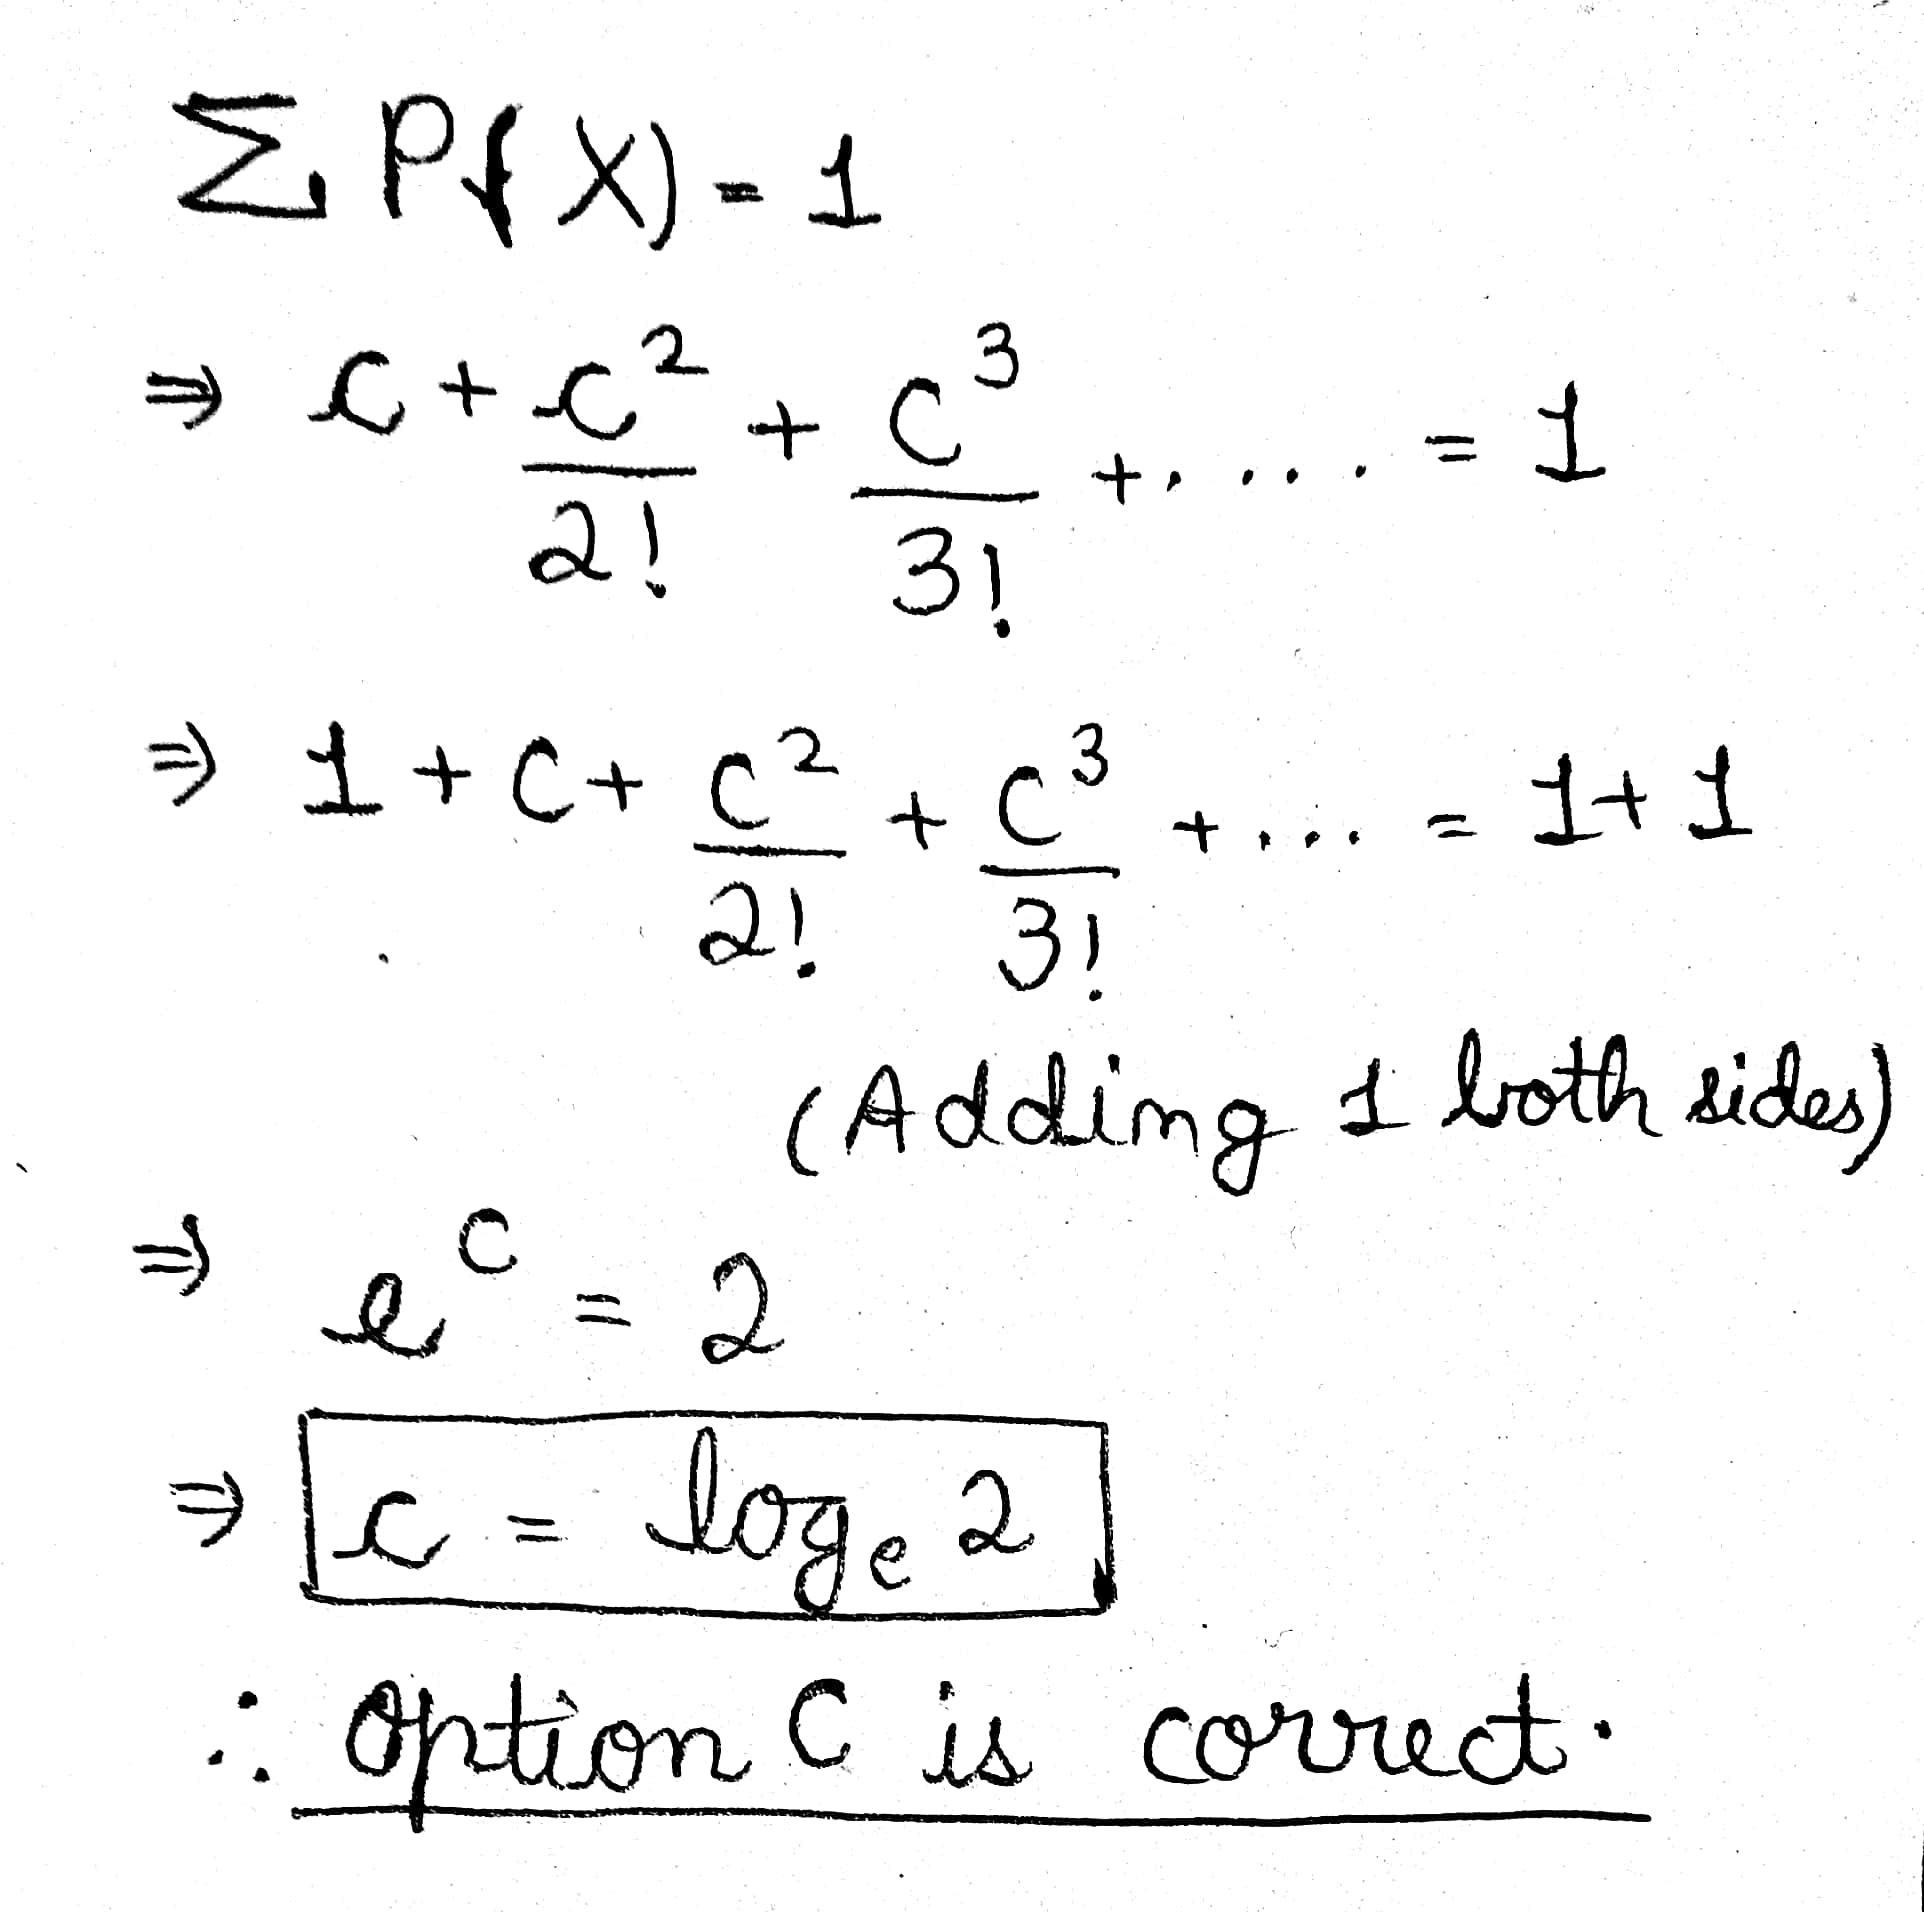 ∑ P(X) = 1
⇒ c + c²/2! + c³/3! + ..... = 1
⇒ 1 + c + c²/2! + c³/3! + .... = 1 + 1
(Adding 1 both sides)
⇒ e^c = 2
⇒ c = logₑ 2
∴ Option C is correct.